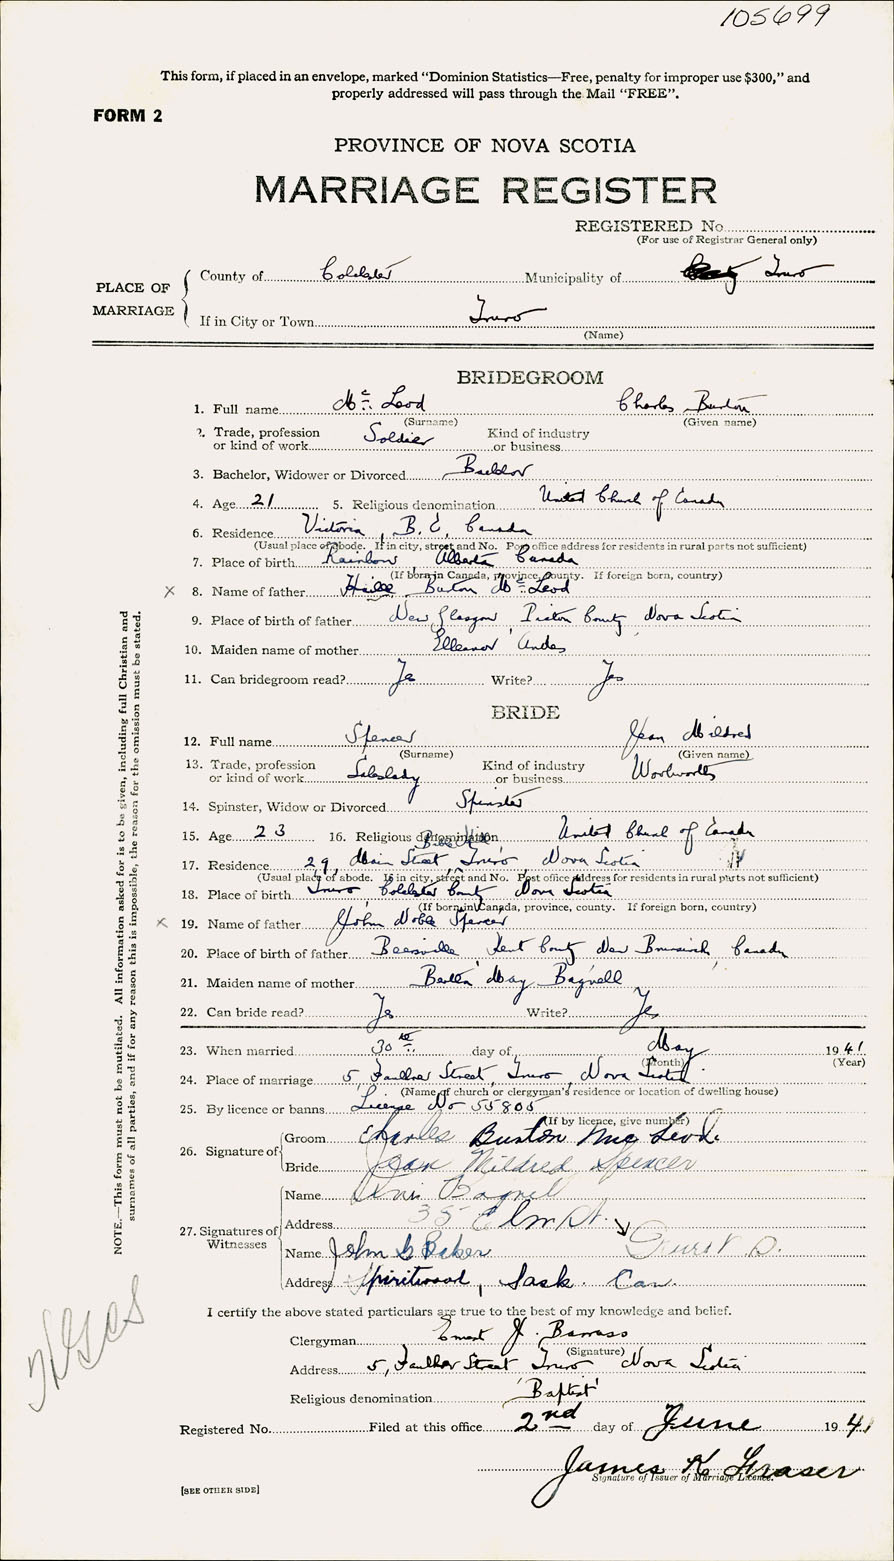 105699
This form, if placed in an envelope, marked “Dominion Statistics—Free, penalty for improper use $300,” and
properly addressed will pass through the Mail “FREE”.
FORM 2
PROVINCE OF NOVA SCOTIA
MARRIAGE REGISTER
REGISTERED No.
(For use of Registrar General only)
PLACE OF MARRIAGE
County of Colchester Municipality of Truro
If in City or Town Truro
(Name)
BRIDEGROOM
1. Full name Mc Leod Charles Burton
(Surname) (Given name)
2. Trade, profession or kind of work Soldier Kind of industry or business
3. Bachelor, Widower or Divorced Bachelor
4. Age 21 5. Religious denomination United Church of Canada
6. Residence Victoria, B.C., Canada
(Usual place of abode. If in city, street and No. Post office address for residents in rural parts not sufficient)
7. Place of birth Rainbow, Alberta Canada
(If born in Canada, province, county. If foreign born, country)
X 8. Name of father Burton Mc Leod
9. Place of birth of father New Glasgow Pictou County, Nova Scotia
10. Maiden name of mother Elleanor
11. Can bridegroom read? Yes Write? Yes
BRIDE
12. Full name Spencer Jean Mildred
(Surname) (Given name)
13. Trade, profession or kind of work Saleslady Kind of industry or business Woolworths
14. Spinster, Widow or Divorced Spinster
15. Age 23 16. Religious denomination United Church of Canada
17. Residence 29, Main Street, Truro Nova Scotia
(Usual place of abode. If in city, street and No. Post office address for residents in rural parts not sufficient)
18. Place of birth Truro, Colchester County Nova Scotia
(If born in Canada, province, county. If foreign born, country)
X 19. Name of father John Noble Spencer
20. Place of birth of father Beersville, Kent County New Brunswick, Canada
21. Maiden name of mother Bertha May Bagnell
22. Can bride read? Yes Write? Yes
23. When married 30th day of May 1941
(Month) (Year)
24. Place of marriage 5, Faulkner Street, Truro, Nova Scotia
(Name of church or clergyman's residence or location of dwelling house)
25. By licence or banns License No 55805
(If by licence, give number)
26. Signature of
Groom Charles Burton Mac Leod.
Bride Jean Mildred Spencer
27. Signatures of Witnesses
Name Bagnell
Address 35 Elm St.
Name John G Baker
Address Spiritwood, Sask. Can.
I certify the above stated particulars are true to the best of my knowledge and belief.
Clergyman Ernest J. Barrass
(Signature)
Address 5, Faulkner Street Truro Nova Scotia
Religious denomination 'Baptist'
Registered No. Filed at this office 2nd day of June 1941
James K Fraser
Signature of Issuer of Marriage Licence.
[SEE OTHER SIDE]
NOTE.—This form must not be mutilated. All information asked for is to be given, including full Christian and
surnames of all parties, and if for any reason this is impossible, the reason for the omission must be stated.